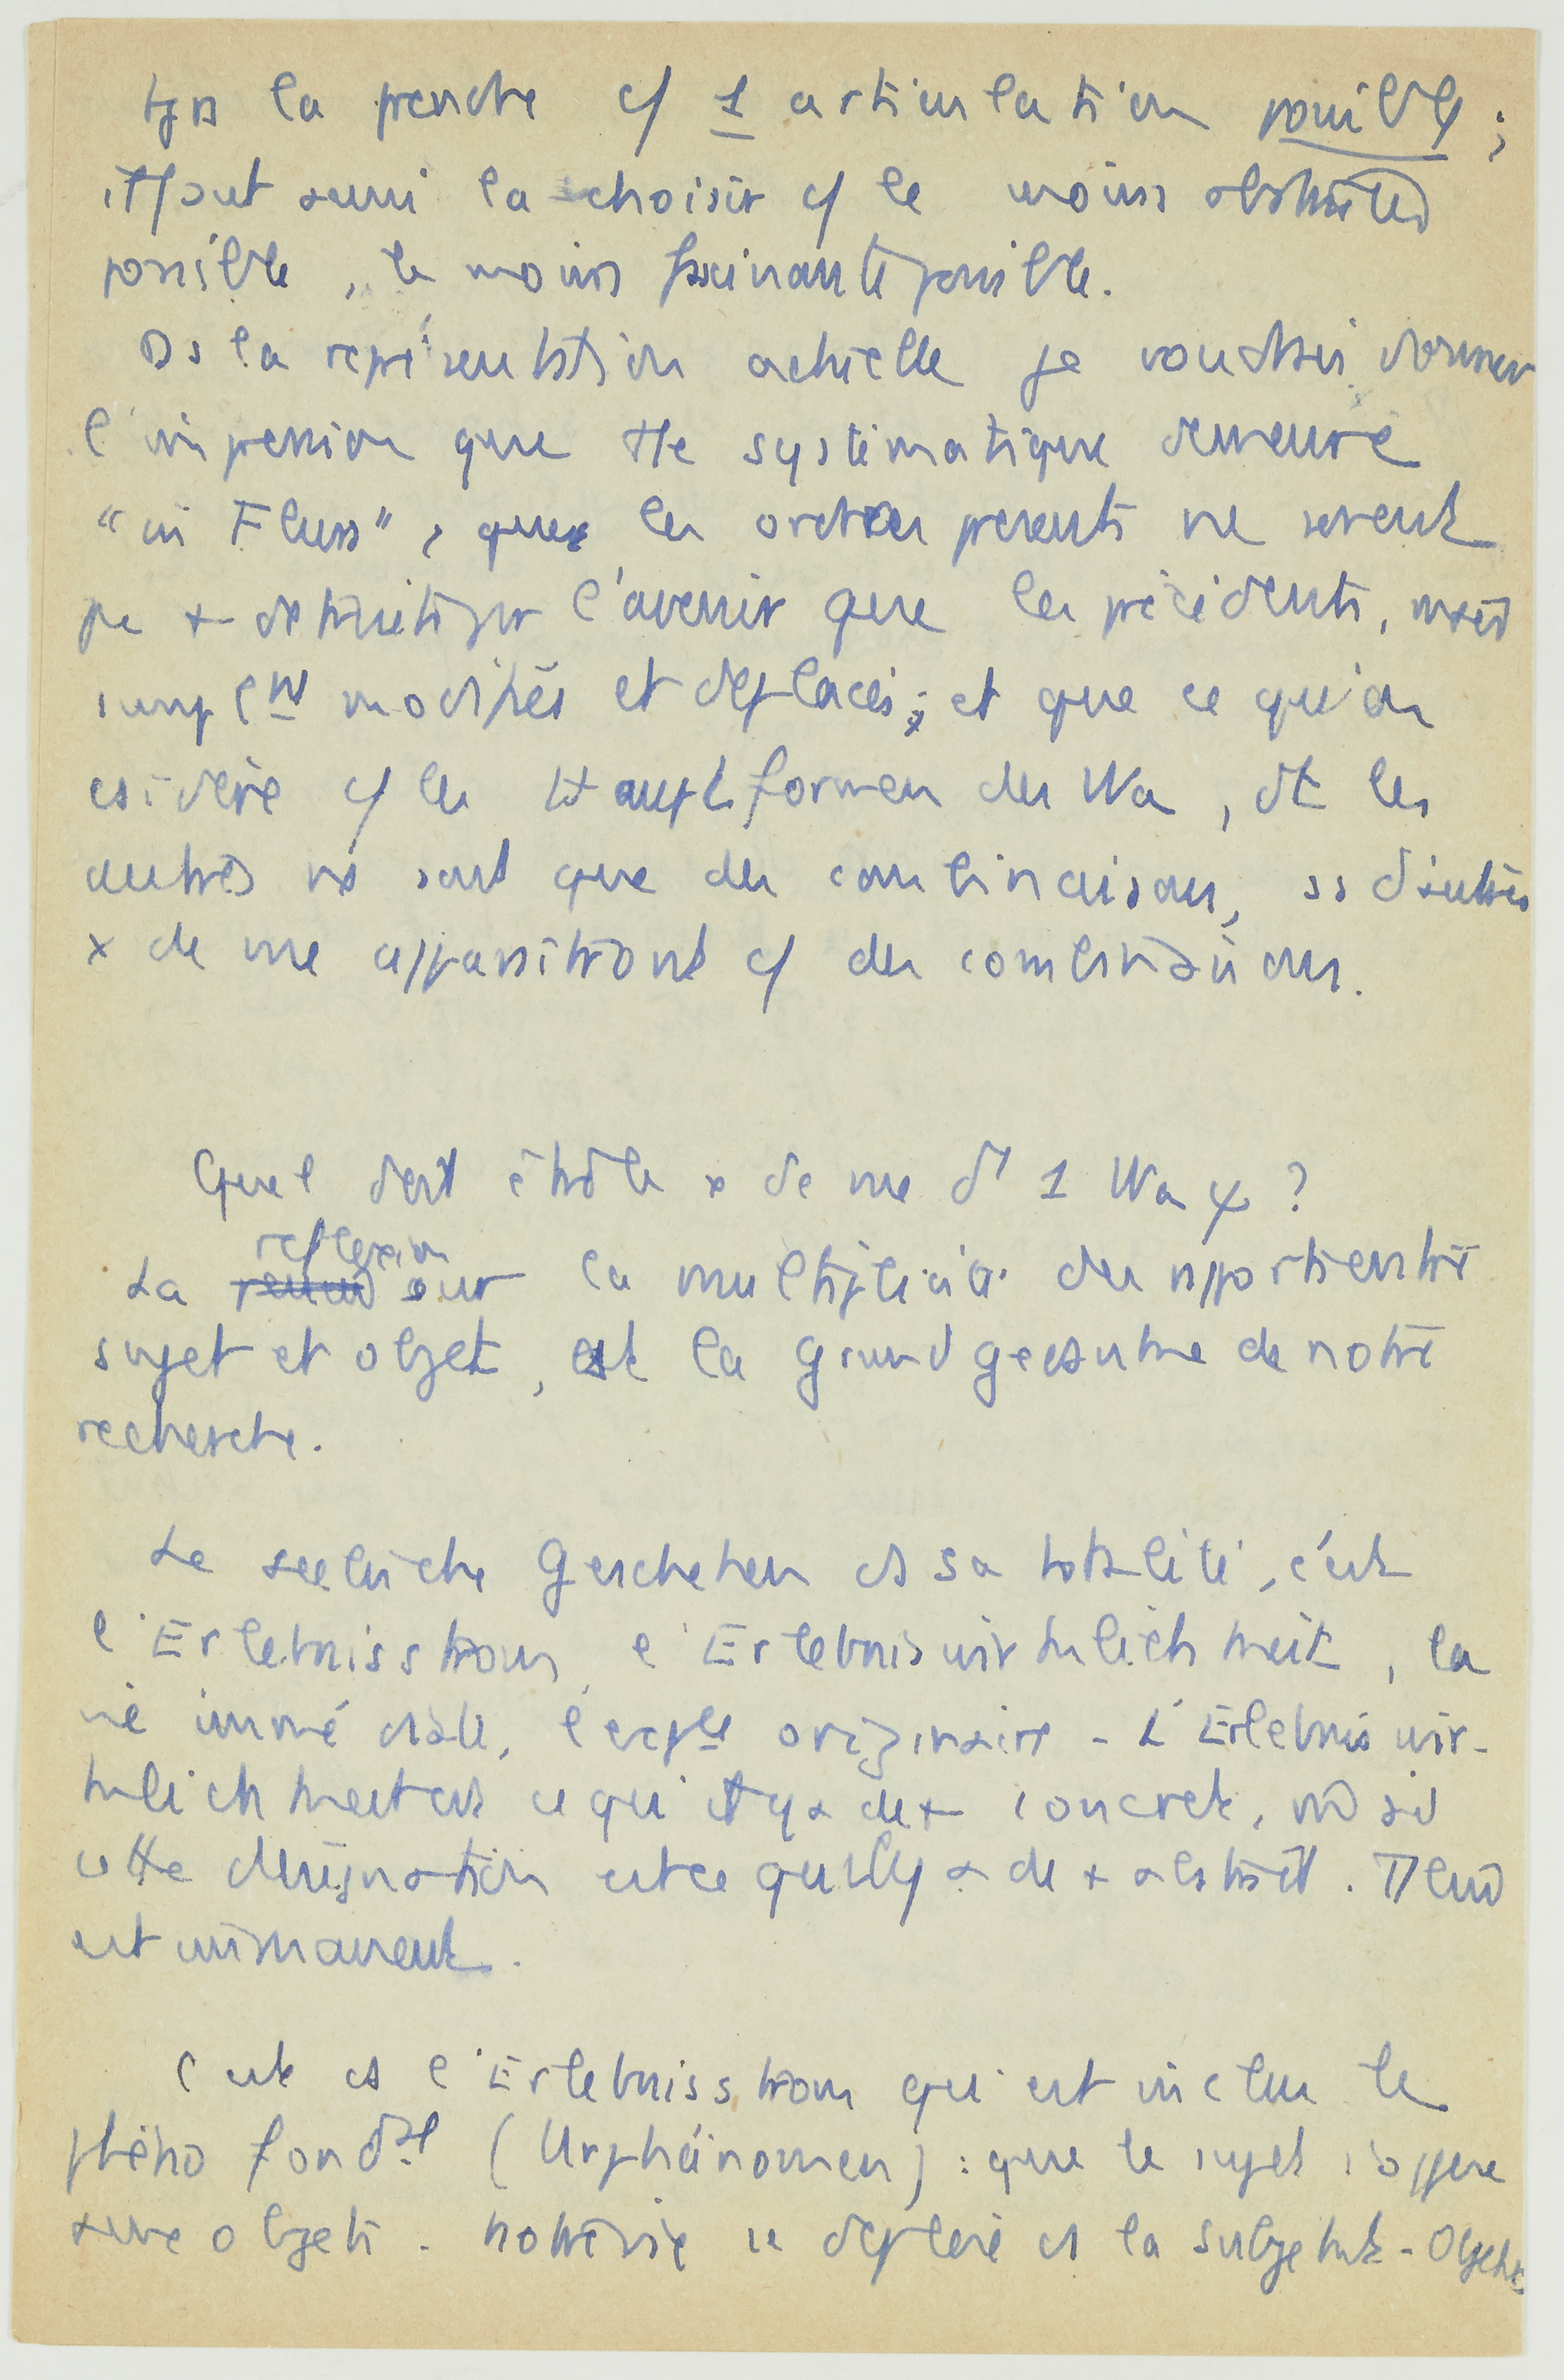 tjrs la prendre c/ 1 articulation possible ;
il faut aussi la choisir c/ le moins abstraite
possible, la moins fascinante possible.
Ds la représentation actuelle je voudrais donner
l'impression que tte systématique demeure
"im Fluss", que les ordres présents ne seront
pas + définitifs pr l'avenir que les précédents, mais
simplmt modifiés et déplacés ; et que ce qu'on
considère c/ les Hauptformen des Wa, dt les
autres ne sont que des combinaisons, ss d'autres
x de vue apparaitront c/ des combinaisons.
Quel doit être le x de vue d' 1 Wa φ ?
La reflexion sur la multiplicité des rapports entre
sujet et objet, est la Grundgedanke de notre
recherche.
Le seelische Geschehen ds sa totalité, c'est
l'Erlebnisstrom, l'Erlebniswirklichkeit, la
vie immédiate, l'expce originaire - L'Erlebniswir-
klichkeit est ce qui il y a de + concret, mais
cette désignation est ce qu'il y a de + abstrait. Tt lui
est immanent.
C'est ds l'Erlebnisstrom qui est inclus le
phéno fondal (Urphänomen) : que le sujet s'oppose
aux objets. Notre vie se déploie ds la Subjekt-Objekt